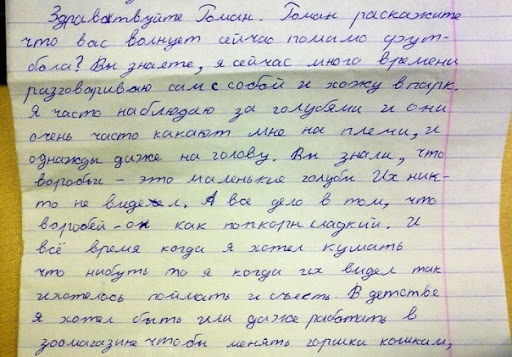 Здравствуйте Гоман. Гоман раскажите
что вас волнует сейчас помамо фут-
бола? Вы знаете, я сейчас много времени
разговориваю сам с собой и хожу в парк.
Я часто наблюдаю за голубями и они
очень часто какают мне на племи, и
однажды даже на голову. Вы знали, что
воробьи - это маленькие голуби Их ник-
то не видел. А все дело в том, что
воробей - он как попкорн сладкий. И
всё время когда я хотел кушать
что нибуть то я когда их видел так
и хотелось поймать и съесть. В детстве
я хотел быть или даже работать в
зоомагазине чтобы менять горшки кошкам,